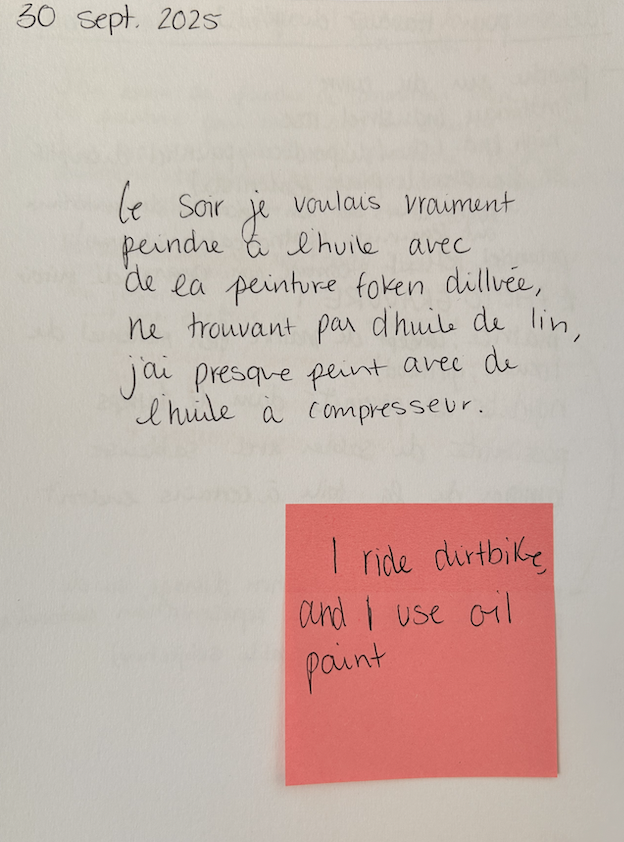 30 sept. 2025
Ce soir je voulais vraiment
peindre à l'huile avec
de la peinture foken dilluée,
ne trouvant pas d'huile de lin,
j'ai presque peint avec de
l'huile à compresseur.
I ride dirtbike,
and I use oil
paint